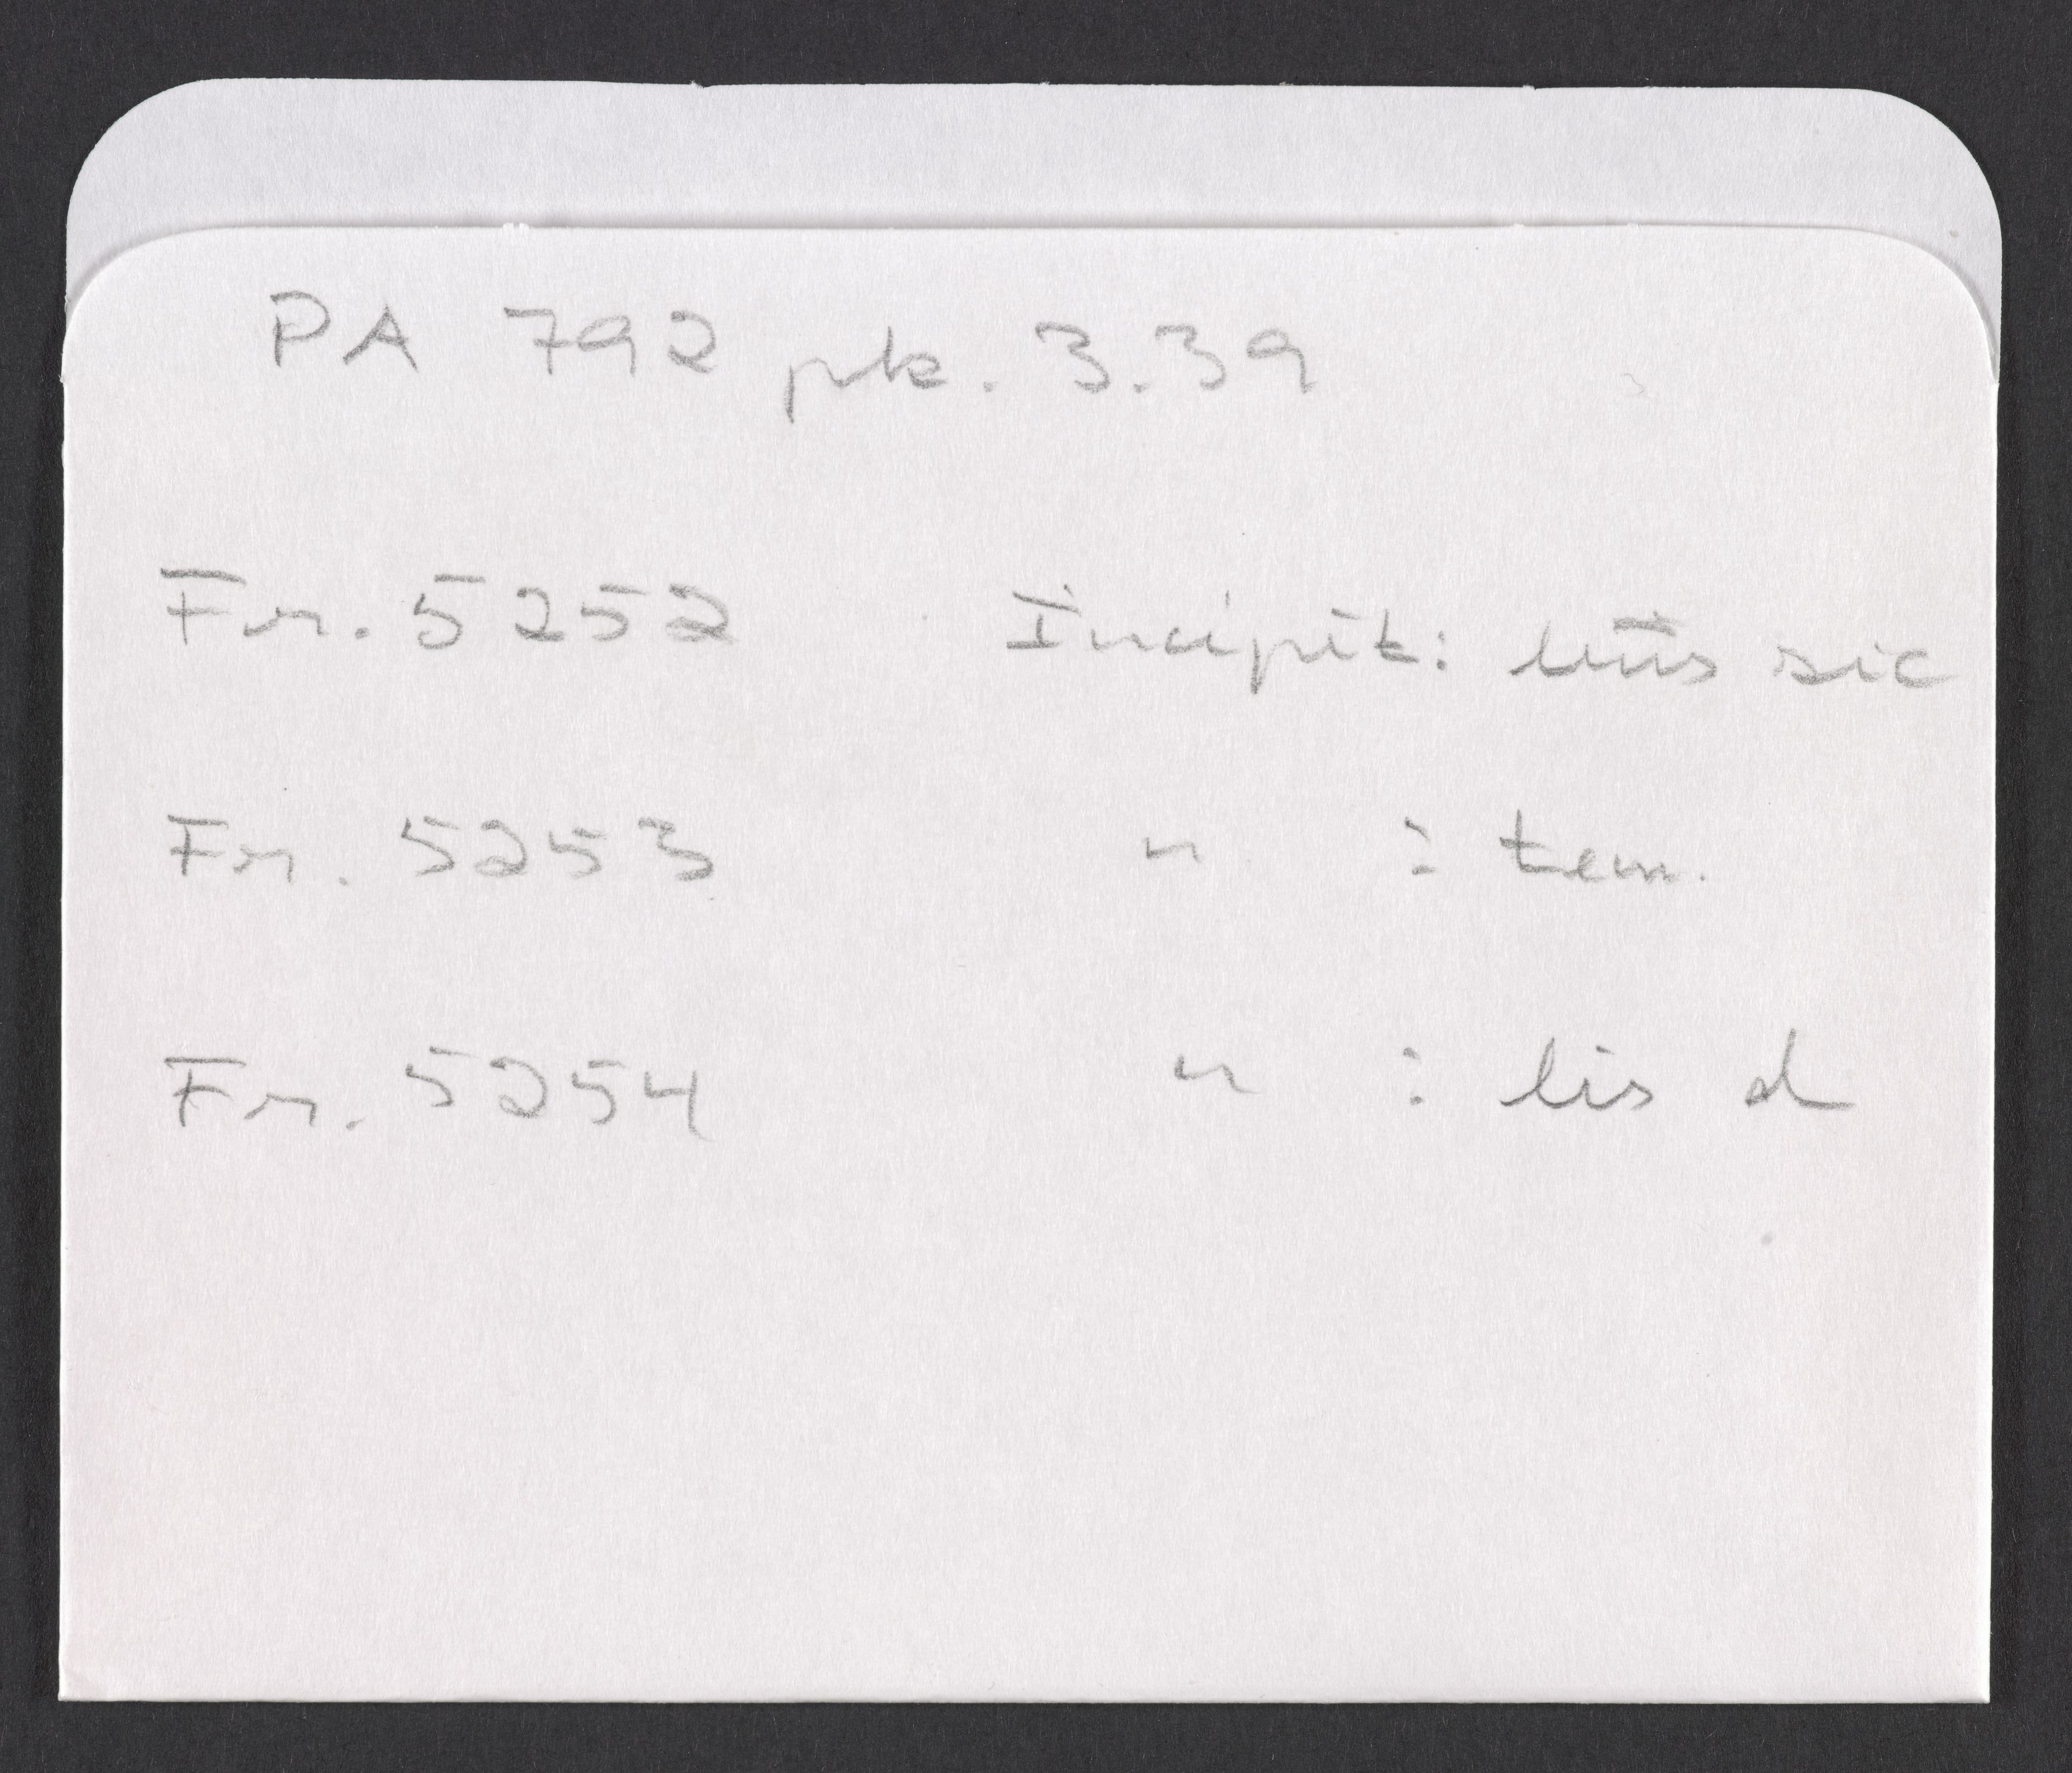 PA 792 pk. 3.39
Fr. 5252 Incipit: lius sic
Fr. 5253 " : tem.
Fr. 5254 " : lis d